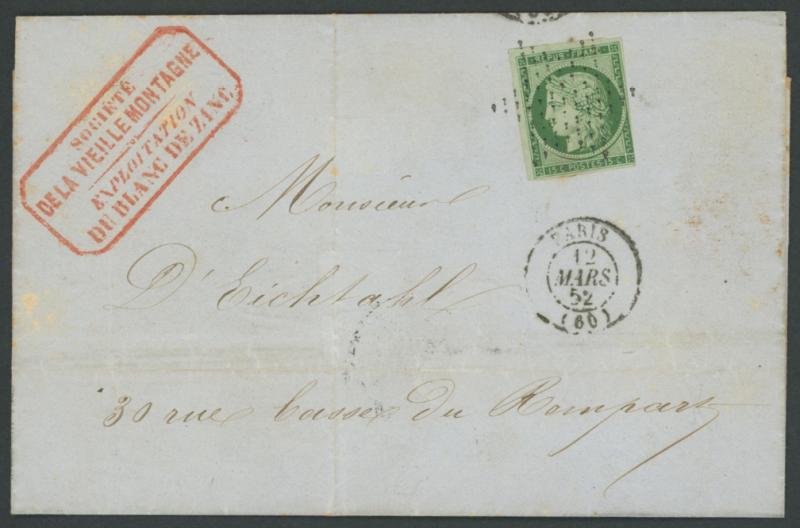 SOCIÉTÉ
DE LA VIEILLE MONTAGNE
EXPLOITATION
DU BLANC DE ZINC
REPUB. FRANC.
15 C. POSTES 15 C.
Monsieur
D'Eichtahl
PARIS
12
MARS
52
(60)
30 rue basse du Rempart